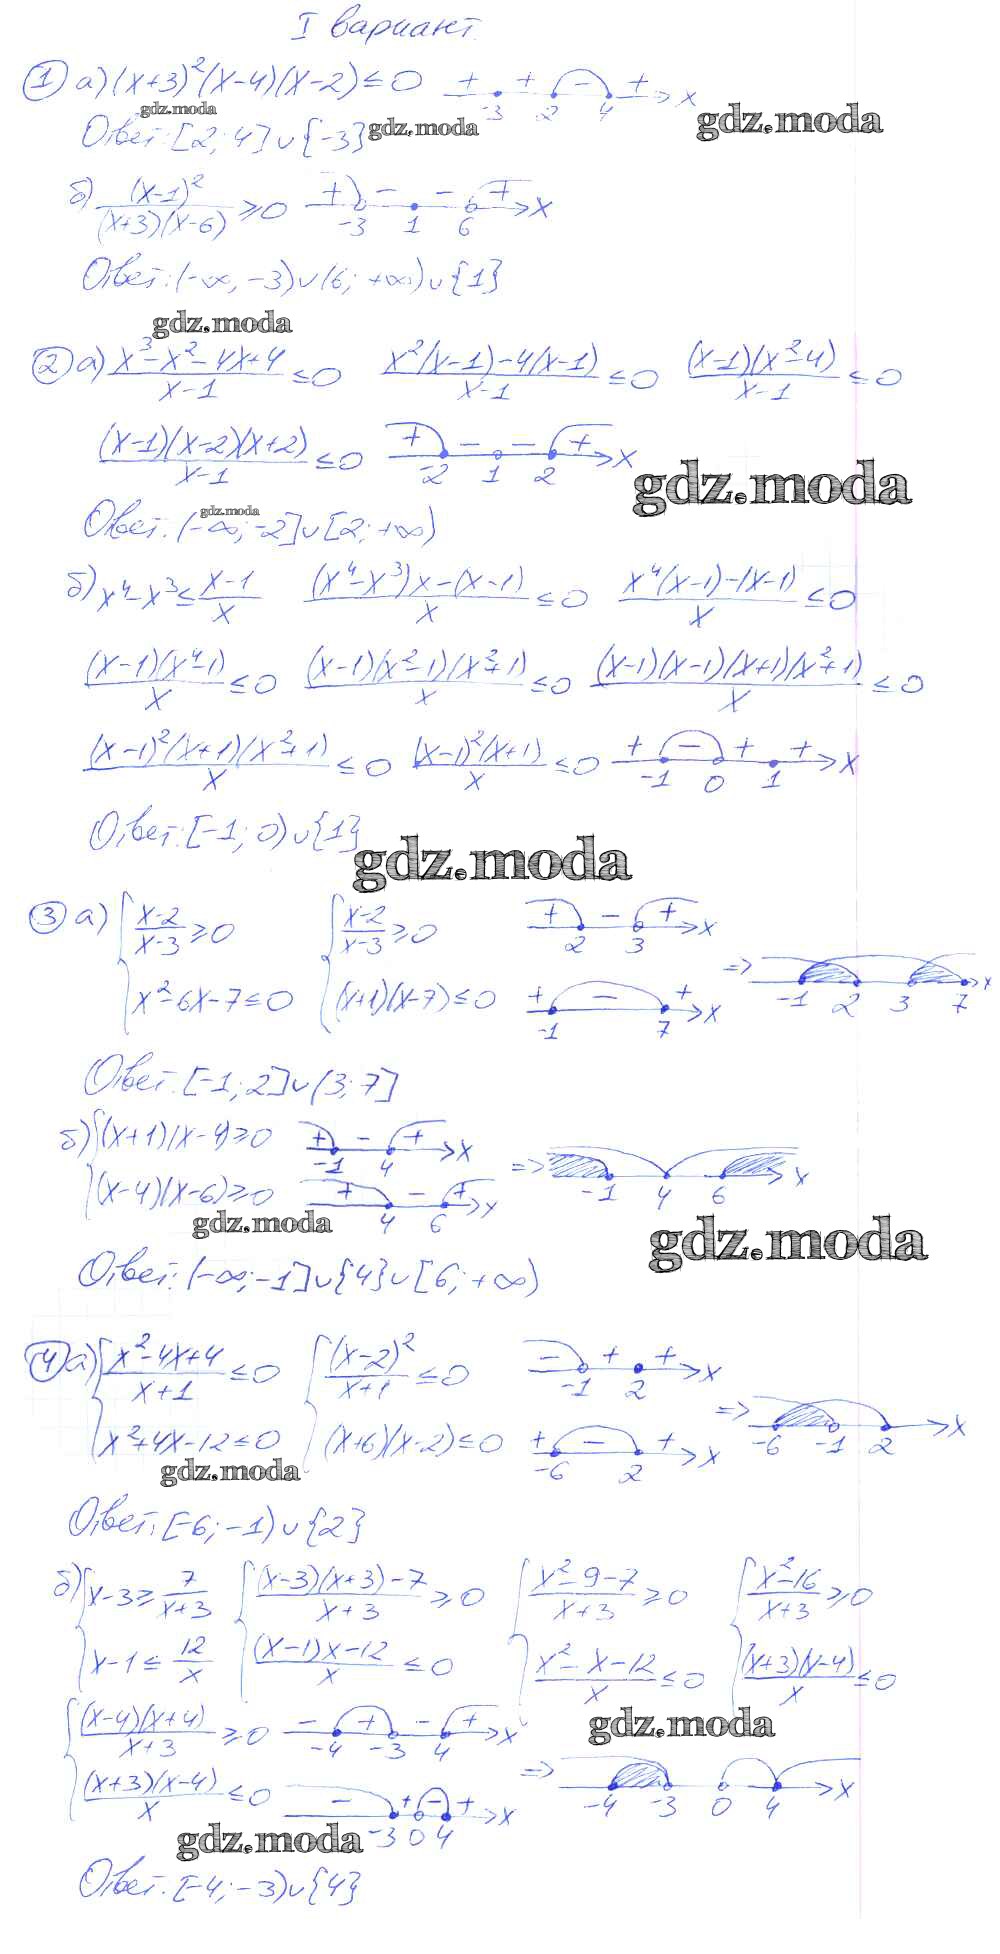 I вариант.
1 а) (x+3)²(x-4)(x-2) ≤ 0 + + - + x
-3 2 4
gdz.moda
gdz.moda
gdz.moda
Ответ: [2; 4] ∪ {-3}
б) (x-1)²/((x+3)(x-6)) ≥ 0 + - - + x
-3 1 6
Ответ: (-∞, -3) ∪ (6; +∞) ∪ {1}
gdz.moda
2 а) (x³-x²-4x+4)/(x-1) ≤ 0 (x²(x-1)-4(x-1))/(x-1) ≤ 0 ((x-1)(x²-4))/(x-1) ≤ 0
((x-1)(x-2)(x+2))/(x-1) ≤ 0 + - - + x
-2 1 2
gdz.moda
gdz.moda
Ответ: (-∞; -2] ∪ [2; +∞)
б) x⁴-x³ ≤ (x-1)/x ((x⁴-x³)x-(x-1))/x ≤ 0 (x⁴(x-1)-(x-1))/x ≤ 0
((x-1)(x⁴-1))/x ≤ 0 ((x-1)(x²-1)(x²+1))/x ≤ 0 ((x-1)(x-1)(x+1)(x²+1))/x ≤ 0
((x-1)²(x+1)(x²+1))/x ≤ 0 ((x-1)²(x+1))/x ≤ 0 + - + + x
-1 0 1
Ответ: [-1; 0) ∪ {1}
gdz.moda
3 а) { (x-2)/(x-3) ≥ 0 { (x-2)/(x-3) ≥ 0 + - + x
2 3
x²-6x-7 ≤ 0 (x+1)(x-7) ≤ 0 + - + x
-1 7
=> -1 2 3 7 x
Ответ: [-1; 2] ∪ (3; 7]
б) { (x+1)(x-4) ≥ 0 + - + x
-1 4
(x-4)(x-6) ≥ 0 + - + x
4 6
=> -1 4 6 x
gdz.moda
gdz.moda
Ответ: (-∞; -1] ∪ {4} ∪ [6; +∞)
4 а) { (x²-4x+4)/(x+1) ≤ 0 { (x-2)²/(x+1) ≤ 0 - + + x
-1 2
x²+4x-12 ≤ 0 (x+6)(x-2) ≤ 0 + - + x
-6 2
=> -6 -1 2 x
gdz.moda
Ответ: [-6; -1) ∪ {2}
б) { x-3 ≥ 7/(x+3) { ((x-3)(x+3)-7)/(x+3) ≥ 0 { (x²-9-7)/(x+3) ≥ 0 { (x²-16)/(x+3) ≥ 0
x-1 ≤ 12/x ((x-1)x-12)/x ≤ 0 (x²-x-12)/x ≤ 0 ((x+3)(x-4))/x ≤ 0
{ ((x-4)(x+4))/(x+3) ≥ 0 - + - + x
-4 -3 4
gdz.moda
((x+3)(x-4))/x ≤ 0 - + - + x
-3 0 4
=> -4 -3 0 4 x
gdz.moda
Ответ: [-4; -3) ∪ {4}